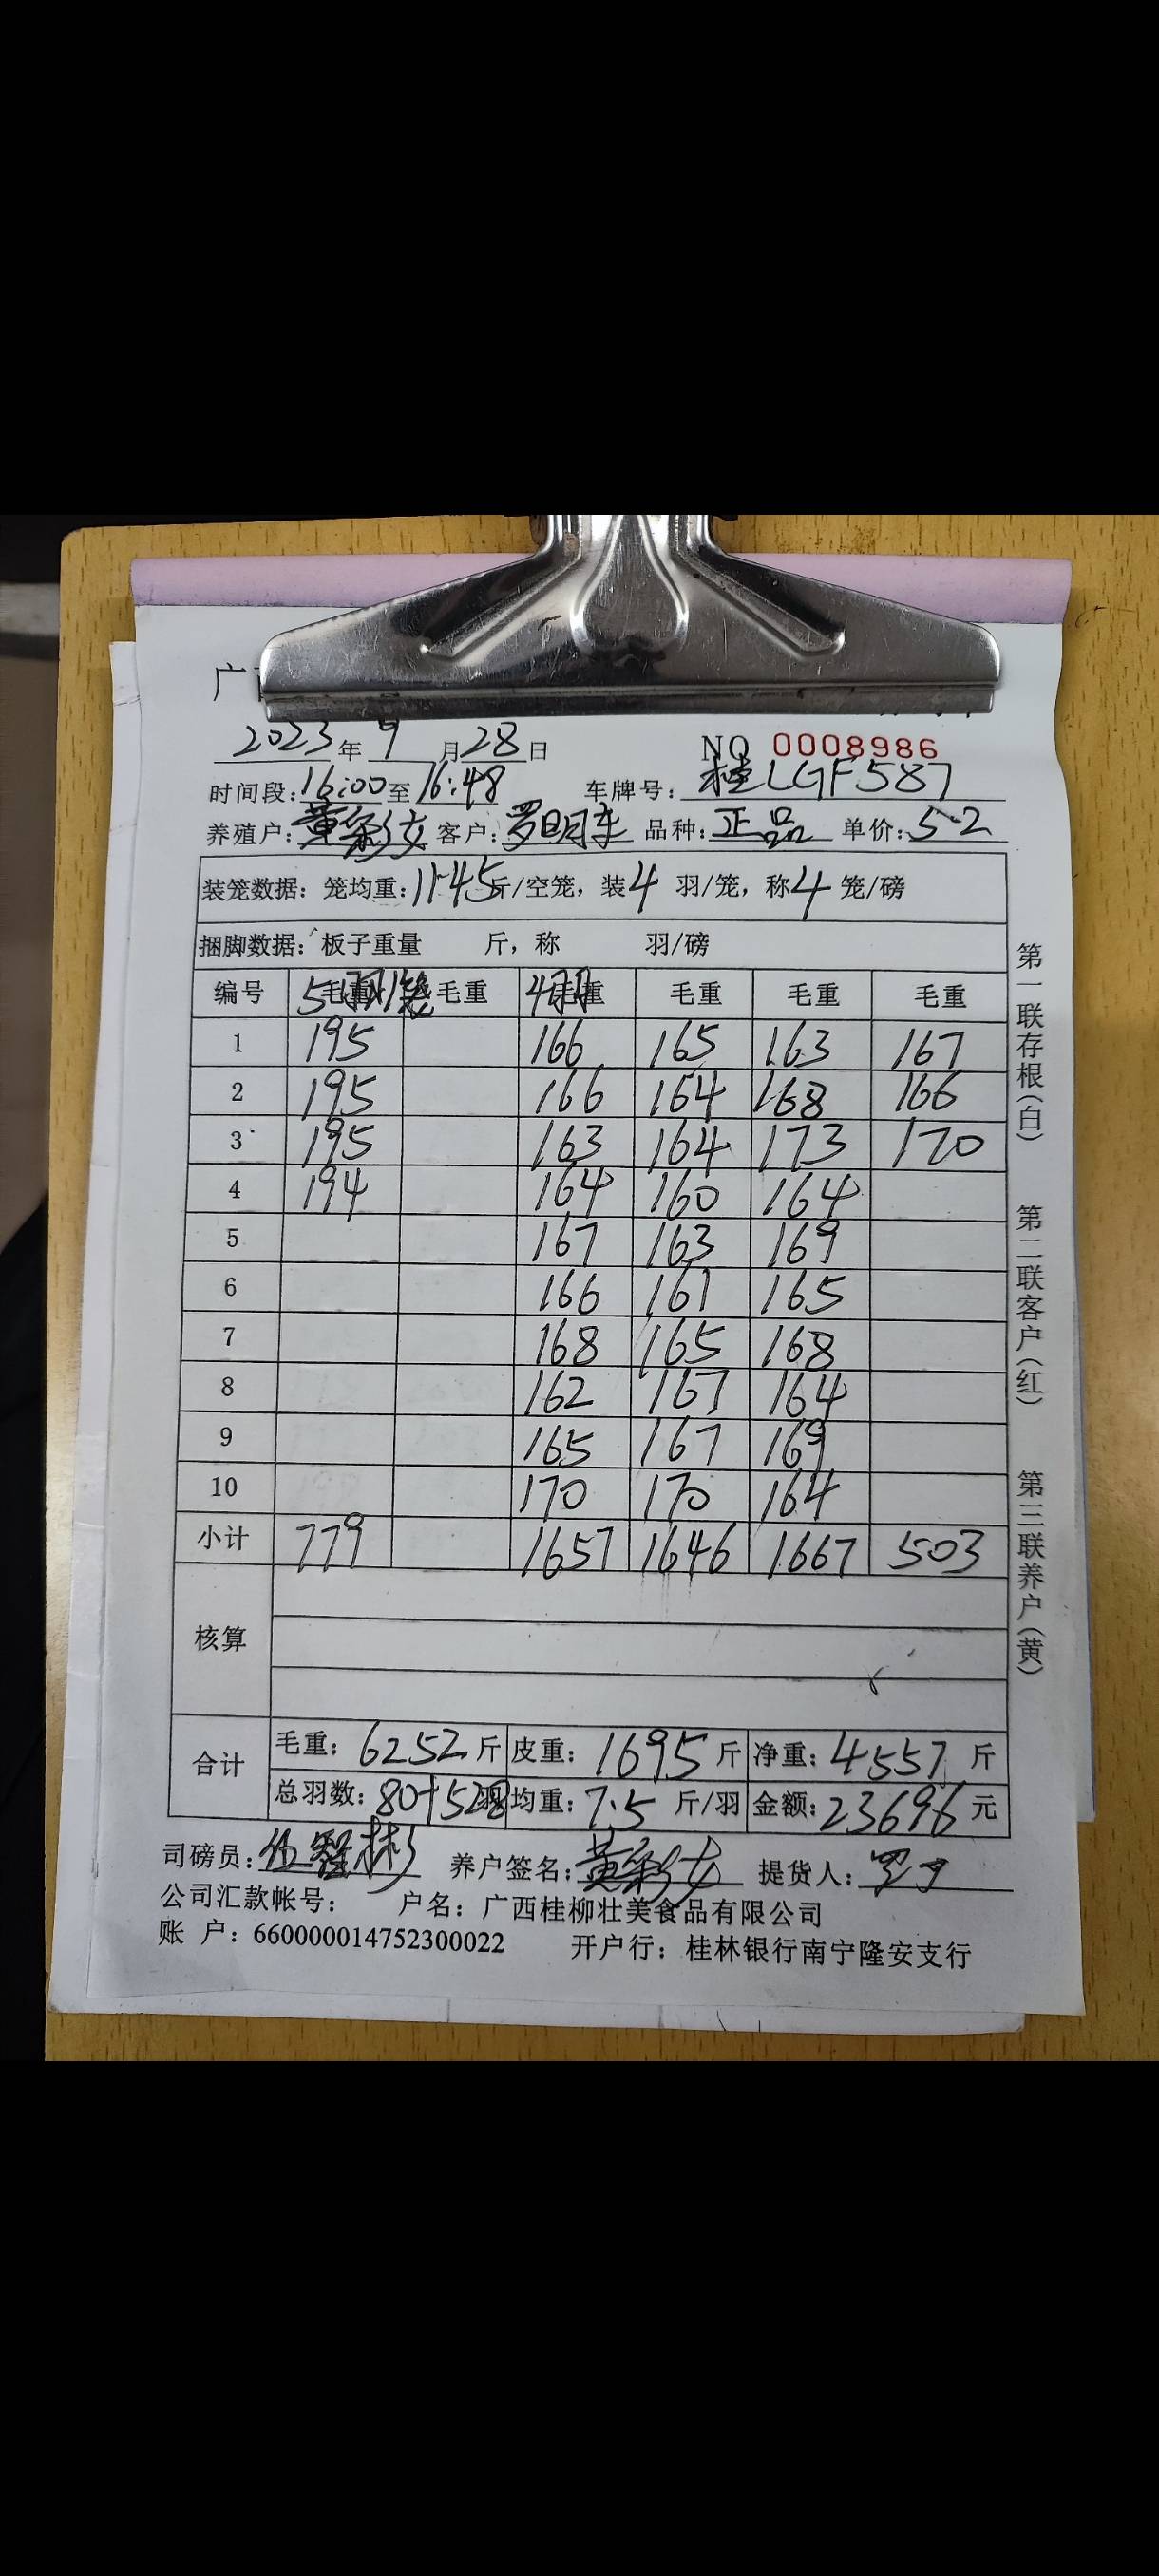 广
2023年9月28日 NO 0008986
时间段:16:00至16:48 车牌号:桂LGF587
养殖户:黄彩 客户:罗明 品种:正品 单价:5.2
装笼数据:笼均重:11.45斤/空笼,装4羽/笼,称4笼/磅
捆脚数据:板子重量 斤,称 羽/磅
编号 毛重 5羽/笼 毛重 毛重 4羽 毛重 毛重 毛重
1 195 166 165 163 167
2 195 166 164 168 166
3 195 163 164 173 170
4 194 164 160 164
5 167 163 169
6 166 161 165
7 168 165 168
8 162 167 164
9 165 167 169
10 170 170 164
小计 779 1657 1646 1667 503
核算
合计 毛重:6252斤 皮重:1695斤 净重:4557斤
总羽数:80+528羽 均重:7.5斤/羽 金额:23696元
司磅员:伍智彬 养户签名:黄彩 提货人:罗
公司汇款帐号: 户名:广西桂柳壮美食品有限公司
账 户:660000014752300022 开户行:桂林银行南宁隆安支行
第一联存根(白)
第二联客户(红)
第三联养户(黄)